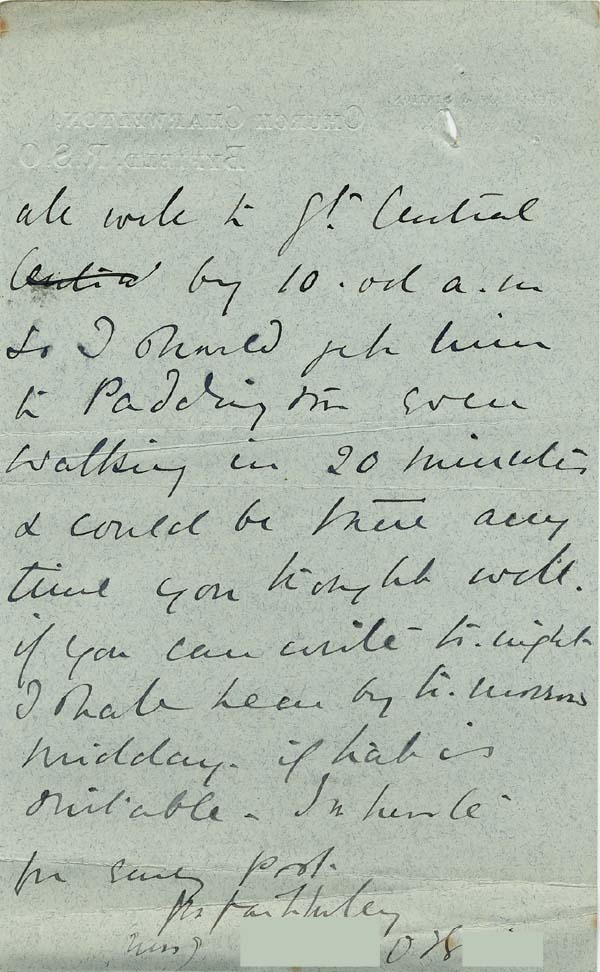 CHURCH CHARWELTON,
BYFIELD, R.S.O.
all well to Gt. Central
Central by 10.od a.m
So I should get him
to Paddington even
walking in 20 minutes
& could be there any
time you thought well.
if you can write to.night
I shall hear by to.morrow
midday. if that is
suitable. In haste
for early post.
yrs faithfully